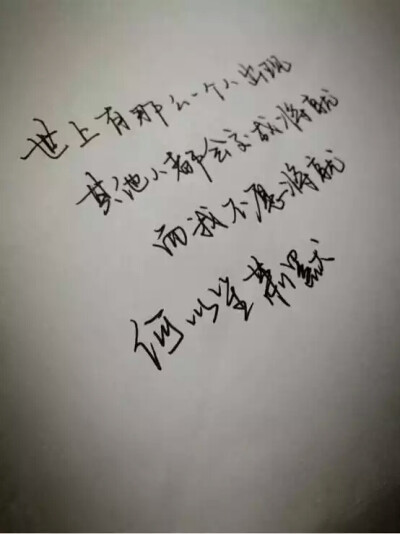 世上有那么一个人出现
其他人都会变成将就
而我不愿将就
何以笙箫默